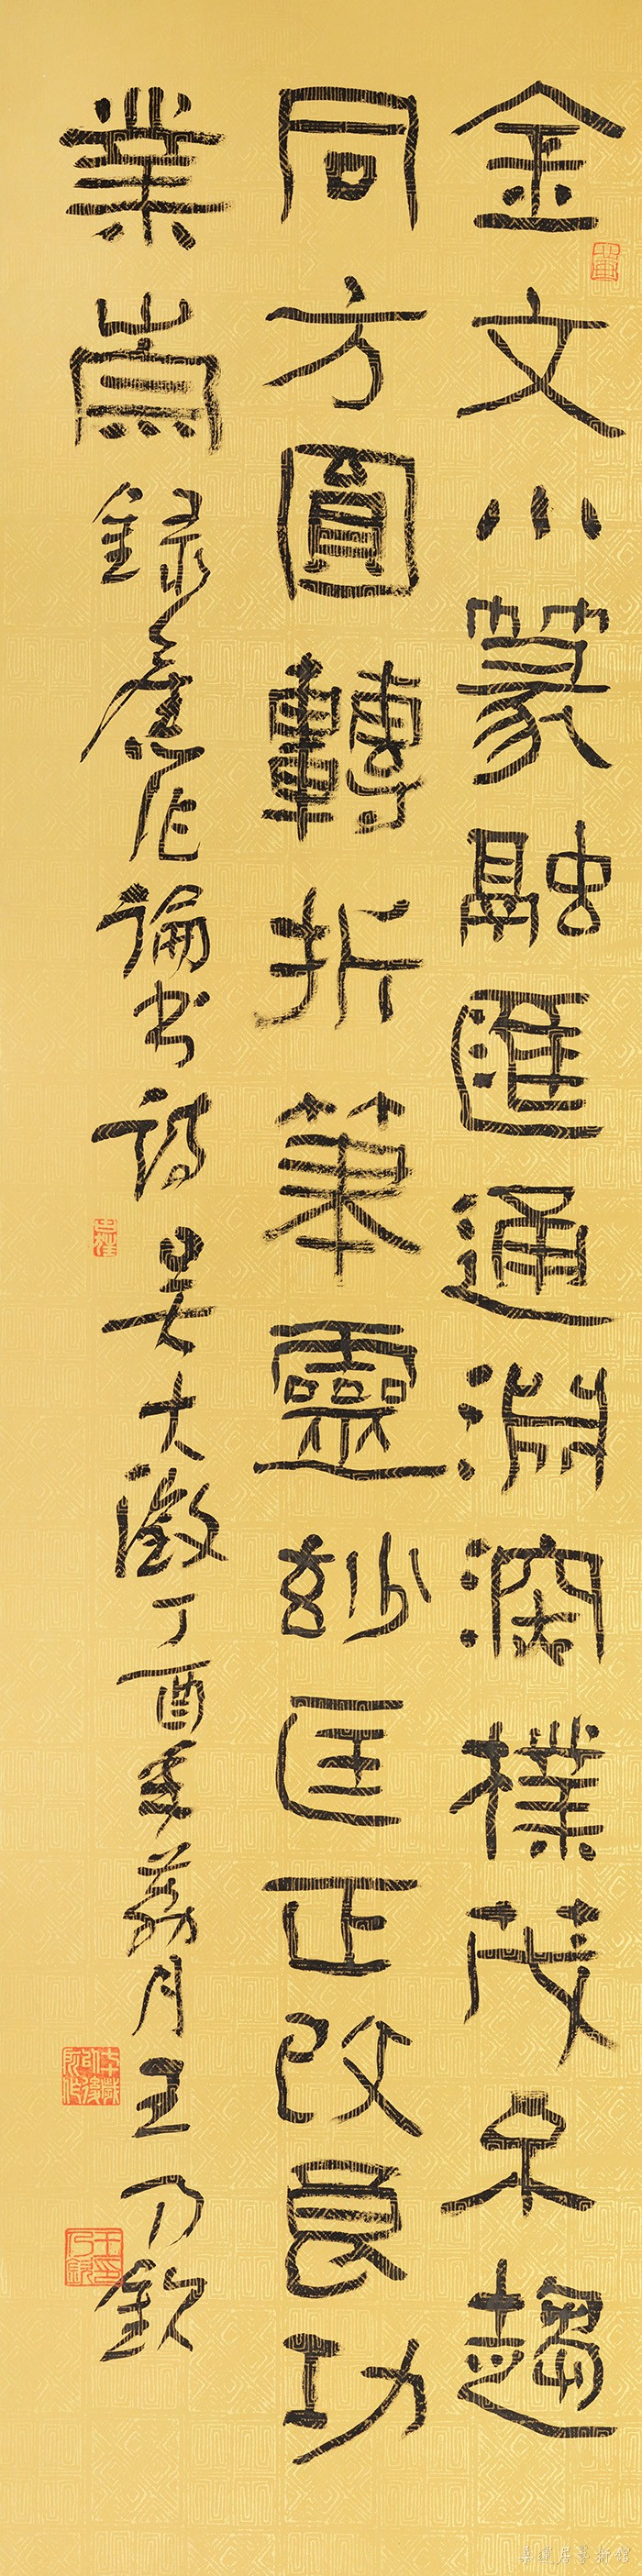 金文小篆融匯通淵深樸茂不趨
同方圓轉折筆靈妙匡正改良功
業崇錄舊作論書詩吳大澂丁酉年荔月王乃欽